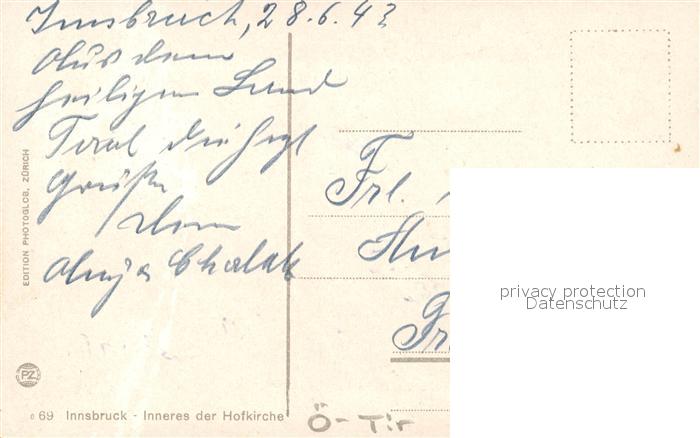 Innsbruck, 28.6.43
Aus dem
heiligen Land
Tirol die herzl
Grüße
Dein
Frl.
EDITION PHOTOGLOB, ZÜRICH
PZ
c 69 Innsbruck - Inneres der Hofkirche
Ö - Tir
privacy protection
Datenschutz